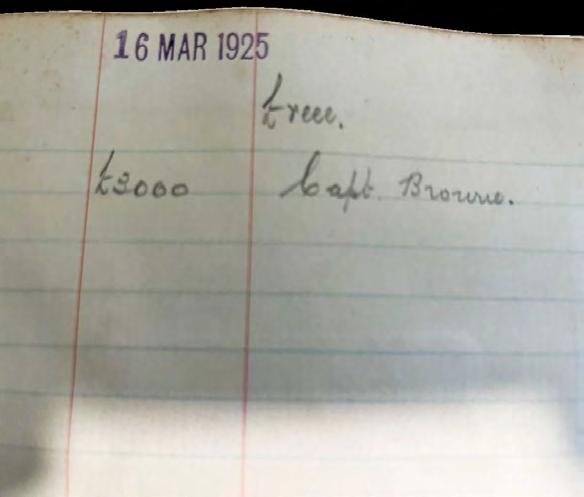 16 MAR 1925
£3000 Capt. Browne.